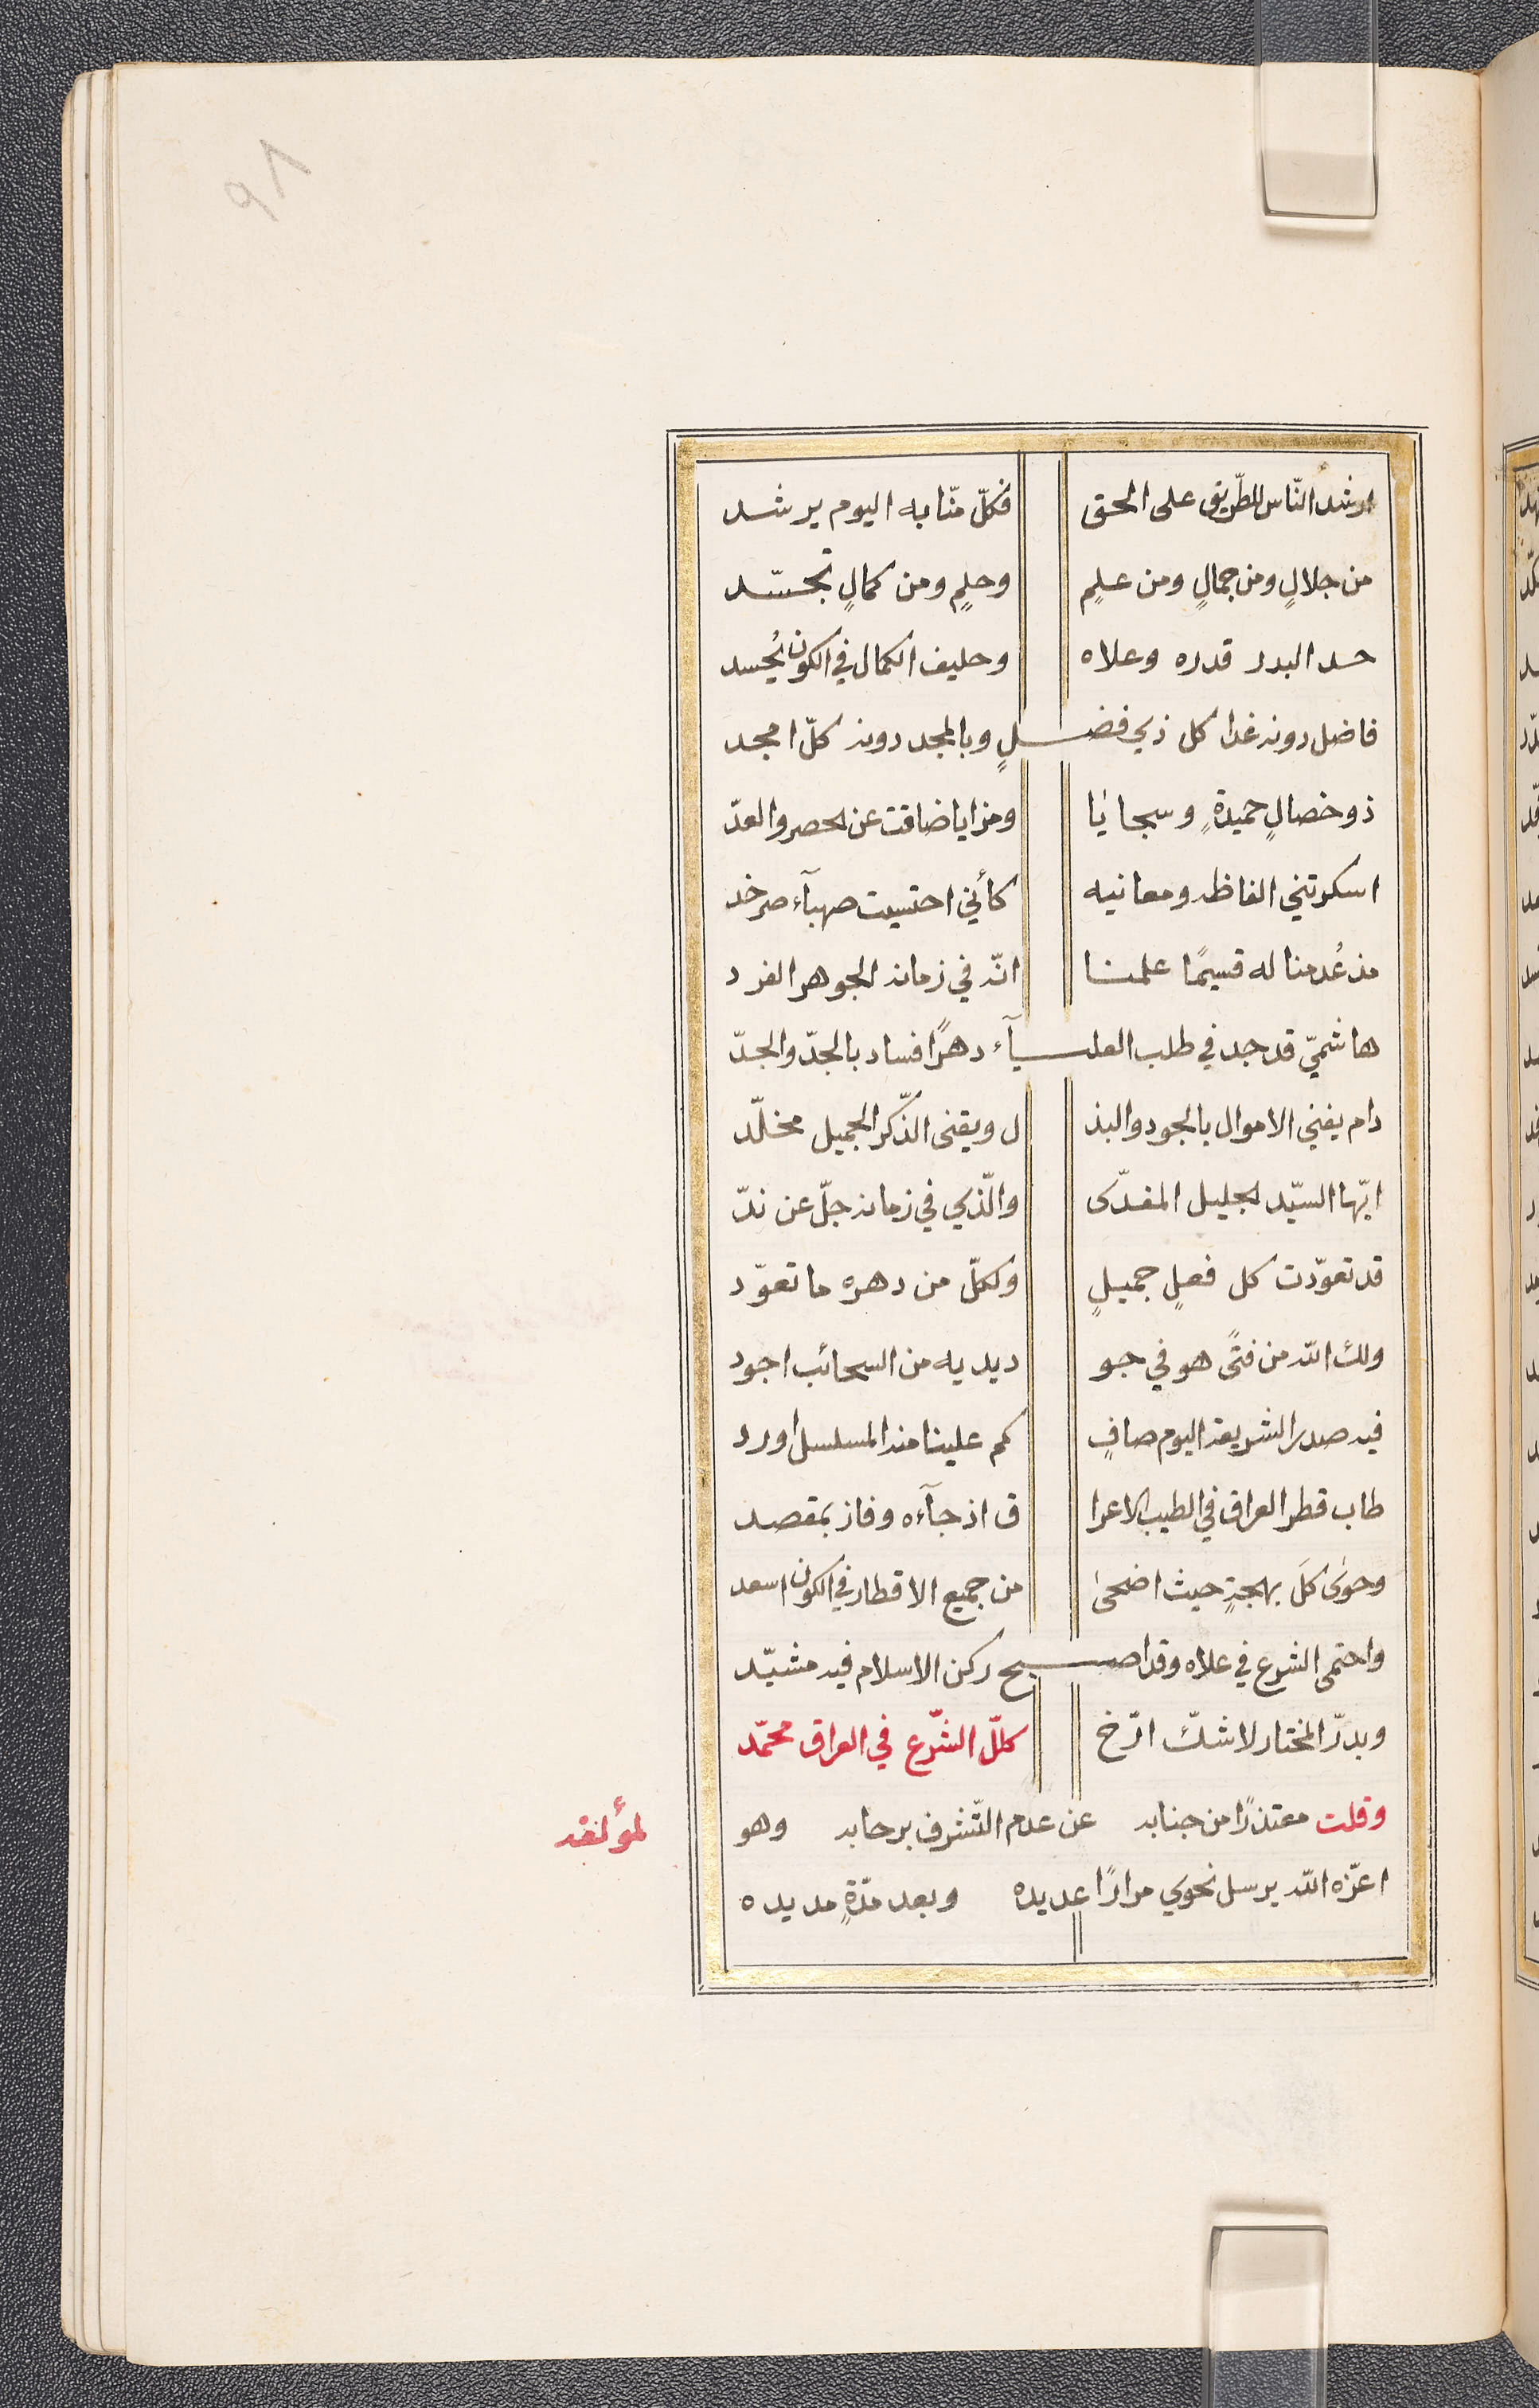 ٩٨
ارشد النّاس للطّريق على الحق فكلّ منّا به اليوم يرشد
من جلالٍ ومن جمالٍ ومن علمٍ وحلمٍ ومن كمالٍ تجسّد
حسد البدر قدره وعلاه وحليف الكمال في الكون يُحسد
فاضل دونه غدا كل ذي فضلٍ وبالمجد دونه كلّ امجد
ذو خصالٍ حميدةٍ وسجايا ومزايا ضاقت عن الحصر والعدّ
اسكرتني الفاظه ومعانيه كأنّي احتسيت صهبآء صرخد
مذ عُدمنا له قسيمًا علمنا انّه في زمانه الجوهر الفرد
هاشميّ قد جد في طلب العليآء دهرًا فساد بالجدّ والجدّ
دام يفني الاموال بالجود والبذ ل ويقنى الذّكر الجميل مخلّد
ايّها السيّد الجليل المفدّى والّذي في زمانه جلّ عن ندّ
قد تعوّدت كل فعلٍ جميلٍ ولكلّ من دهره ما تعوّد
ولك الله من فتًى هو في جو د يديه من السحائب اجود
فيه صدر الشريعة اليوم صافٍ كم علينا منه المسلسل اورد
طاب قطر العراق في الطيب الاعرا ق اذ جآءه وفاز بمقصد
وحوى كلَ بهجةٍ حيث اضحى من جميع الاقطار في الكون اسعد
واحتمى الشرع في علاه وقد اصبح ركن الاسلام فيه مشيّد
وبدرّ المختار لا شكّ ارّخ كلّل الشّرع في العراق محمّد
وقلت معتذرًا من جنابه عن عدم التّشرف برحابه وهو
لمؤلفه
اعزّه الله يرسل نحوي مرارًا عديده وبعد مدّةٍ مديده